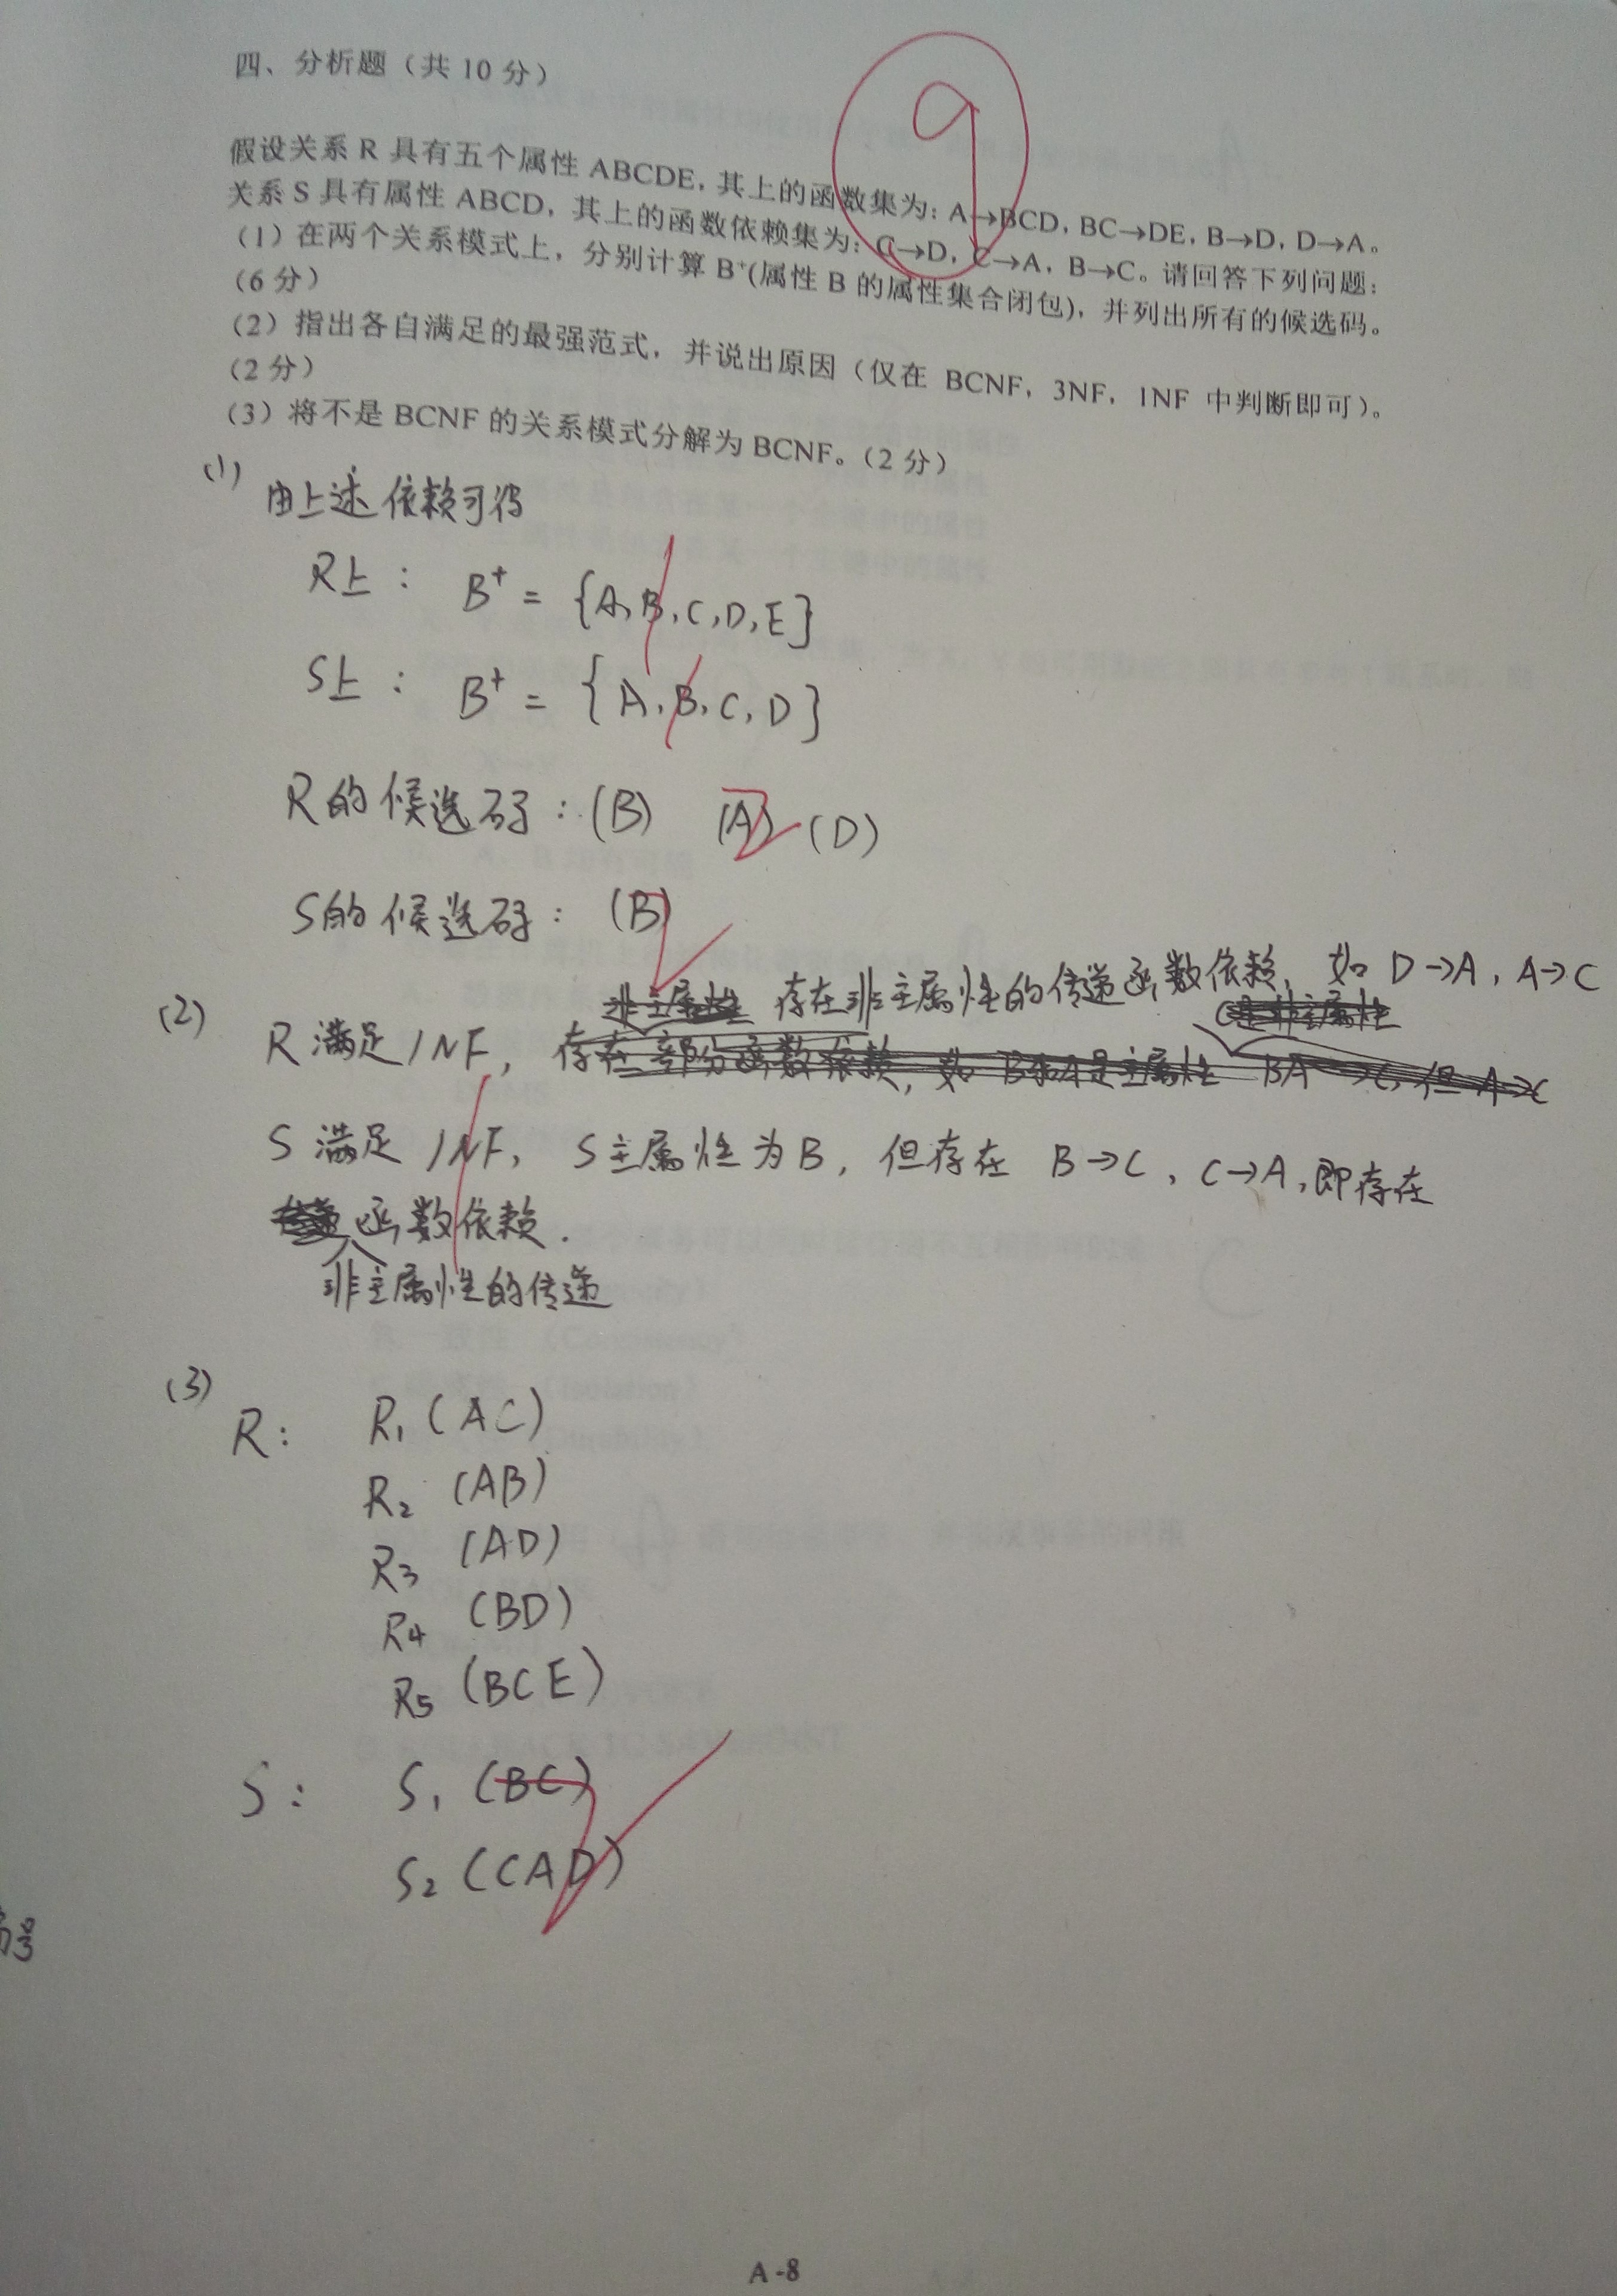 四、分析题（共 10 分）
9
假设关系 R 具有五个属性 ABCDE，其上的函数集为：A→BCD，BC→DE，B→D，D→A。
关系 S 具有属性 ABCD，其上的函数依赖集为：C→D，C→A，B→C。请回答下列问题：
（1）在两个关系模式上，分别计算 B⁺(属性 B 的属性集合闭包)，并列出所有的候选码。
（6 分）
（2）指出各自满足的最强范式，并说出原因（仅在 BCNF，3NF，1NF 中判断即可）。
（2 分）
（3）将不是 BCNF 的关系模式分解为 BCNF。（2 分）
(1) 由上述依赖可得
R上： B⁺ = {A,B,C,D,E}
S上： B⁺ = {A,B,C,D}
R的候选码：(B) (A) (D)
S的候选码： (B)
(2) 非主属性 存在非主属性的传递函数依赖，如 D→A，A→C
R满足1NF，存在部分函数依赖，如 B和A是主属性 BA→C，但A→C
S满足1NF，S主属性为B，但存在 B→C，C→A，即存在
函数依赖.
非主属性的传递
(3) R： R₁(AC)
R₂ (AB)
R₃ (AD)
R₄ (BD)
R₅ (BCE)
S： S₁ (BC)
S₂ (CAD)
A -8